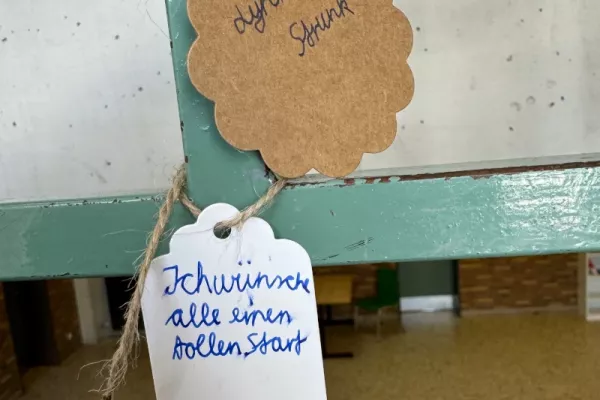 Strunk
Ich wünsche
alle einen
tollen Start